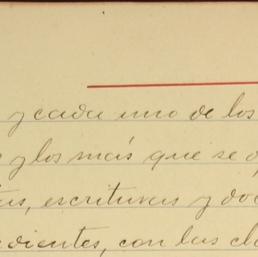 y cada uno de los
y los más que se
escrituras y do
dientes, con las